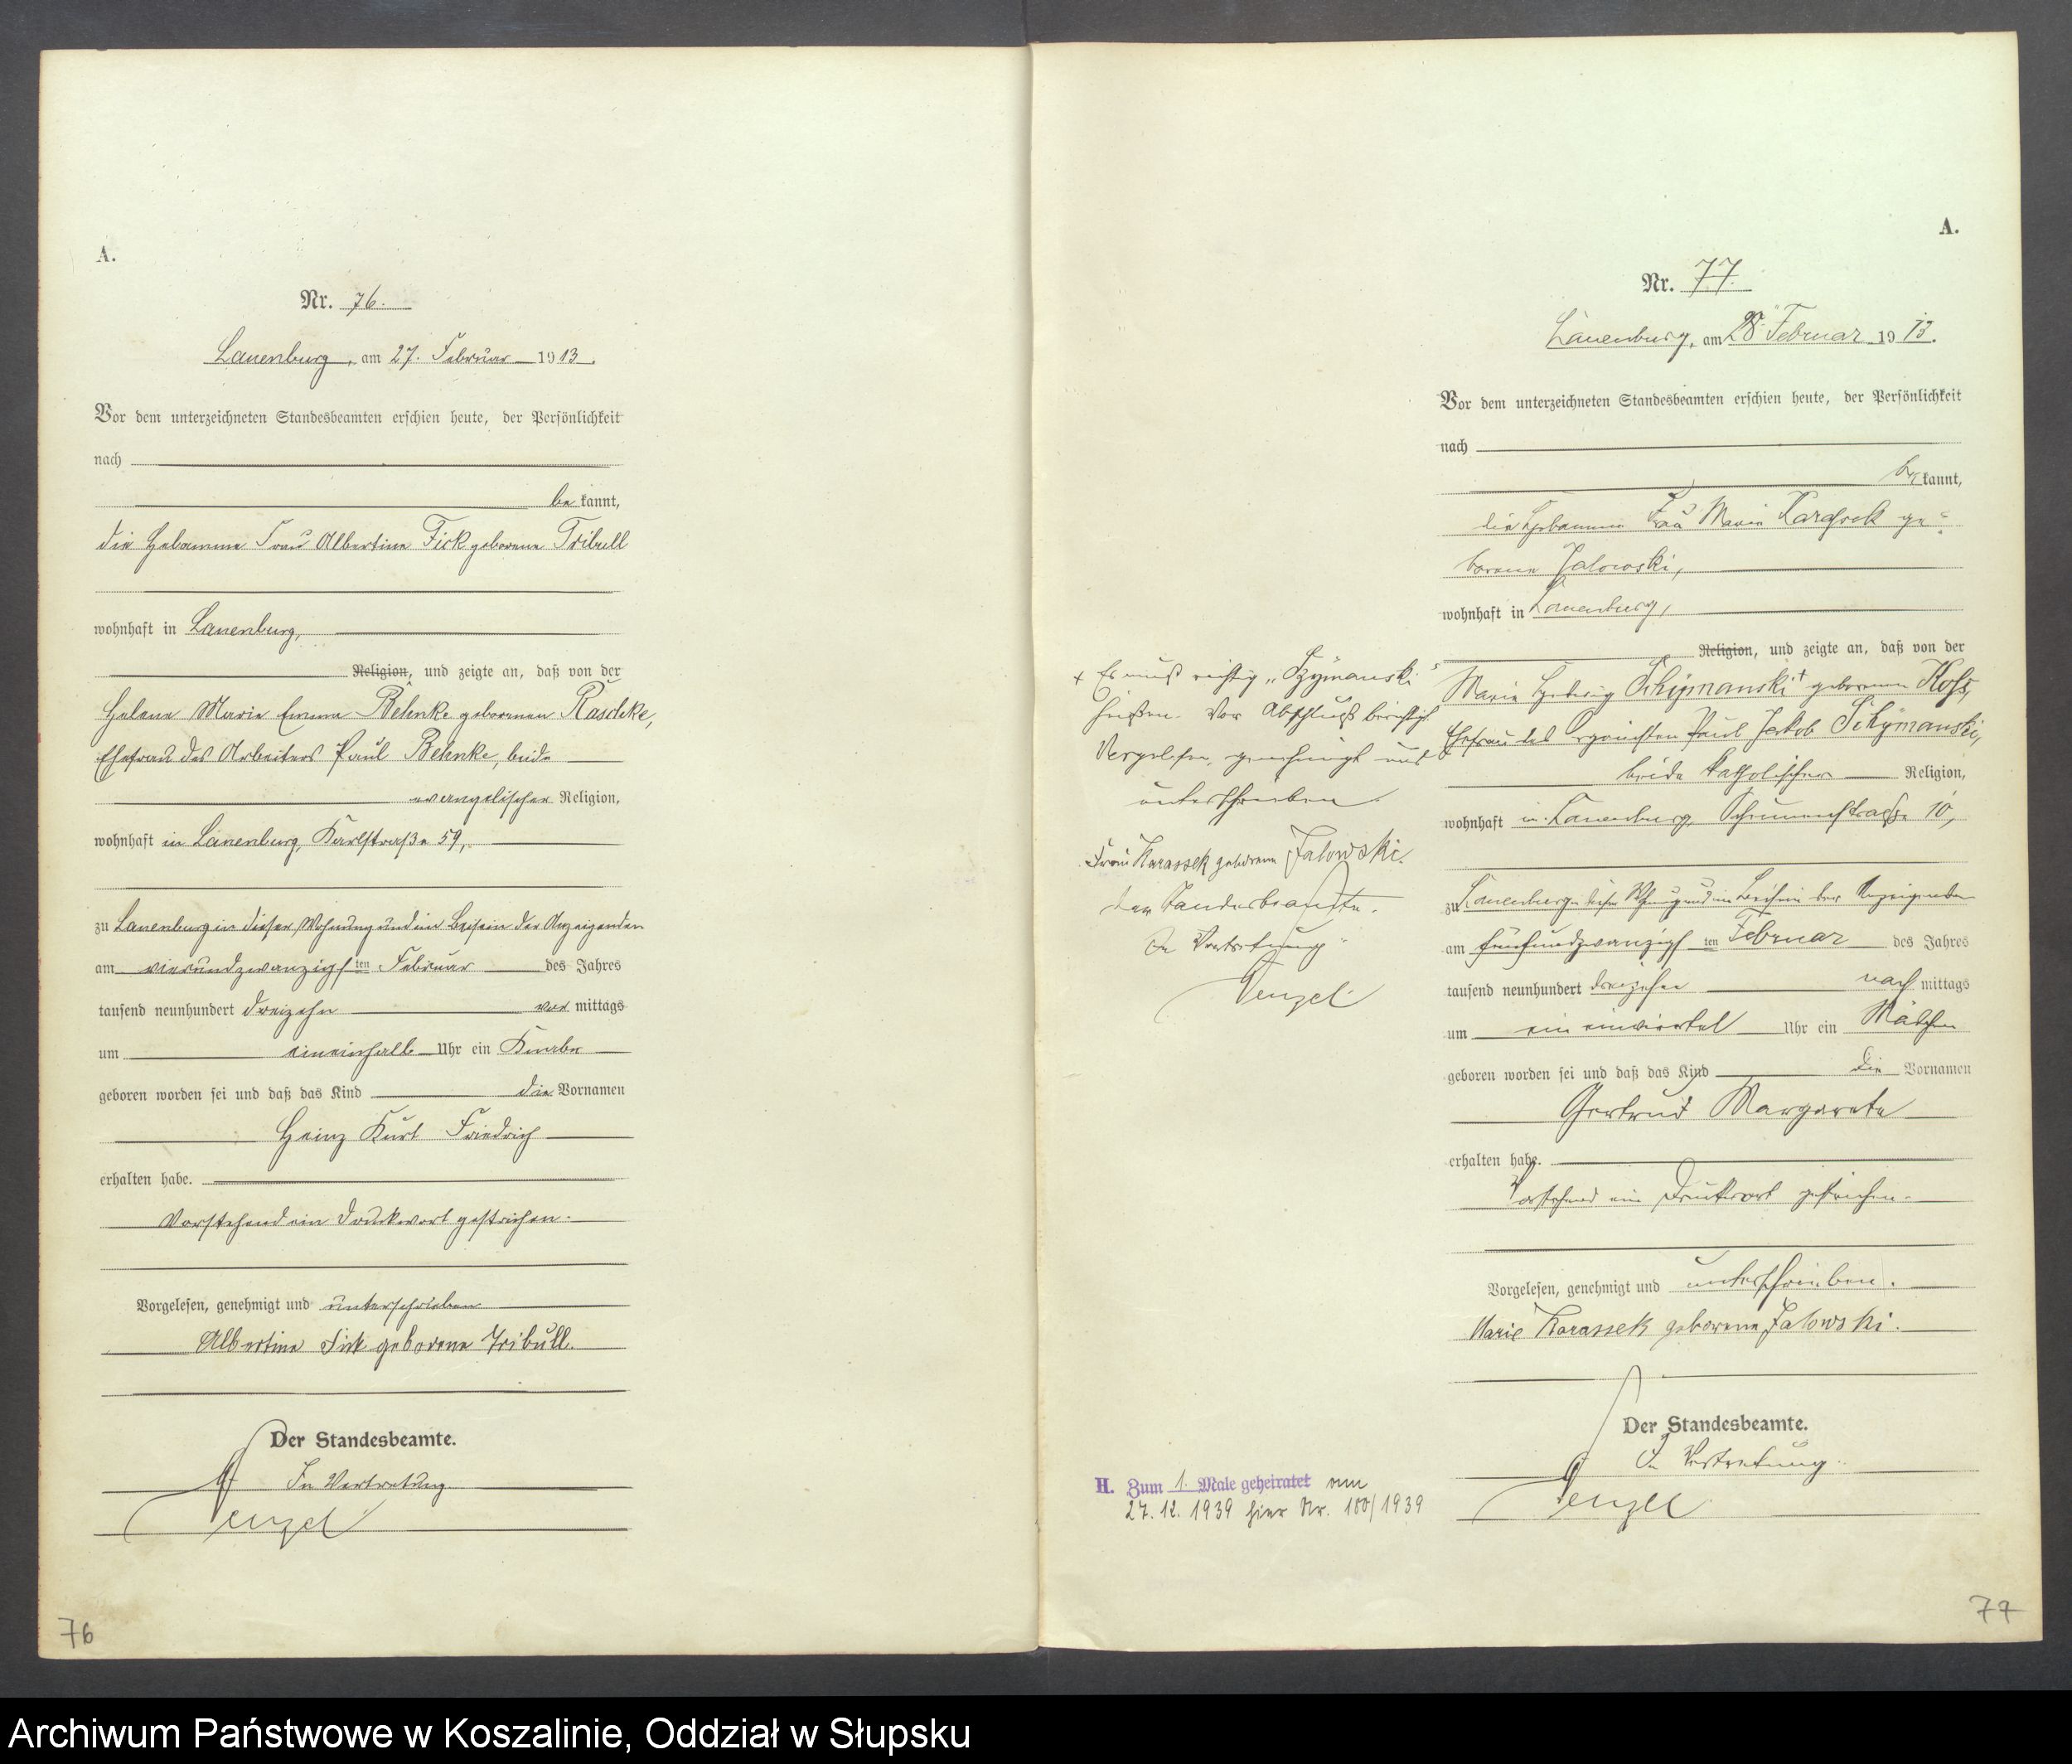 A.
Nr. 76.
Lauenburg, am 27. Februar 1913.
Vor dem unterzeichneten Standesbeamten erschien heute, der Persönlichkeit
nach
be kannt,
die Hebamme Frau Albertine Fick geborene Tribull
wohnhaft in Lauenburg,
Religion, und zeigte an, daß von der
Helene Marie Emma Behnke geborenen Raschke,
Ehefrau des Arbeiters Paul Behnke, beide
evangelischer Religion,
wohnhaft in Lauenburg, Karlstraße 59,
zu Lauenburg in dieser Wohnung und in Beisein der Anzeigenden
am vierundzwanzigsten Februar des Jahres
tausend neunhundert dreizehn vor mittags
um eineinhalb Uhr ein Knabe
geboren worden sei und daß das Kind die Vornamen
Heinz Kurt Friedrich
erhalten habe.
Vorstehend ein Druckwort gestrichen.
Vorgelesen, genehmigt und unterschrieben
Albertine Fick geborene Tribull.
Der Standesbeamte.
In Vertretung
76
A.
Nr. 77.
Lauenburg, am 28. Februar 1913.
Vor dem unterzeichneten Standesbeamten erschien heute, der Persönlichkeit
nach
be kannt,
die Hebamme Frau Marie Karassek ge=
borene Jalowski,
wohnhaft in Lauenburg,
Religion, und zeigte an, daß von der
Marie Hedwig Schymanski + geborenen Koss,
Ehefrau des Organisten Paul Jakob Schymanski,
beide katholischer Religion,
wohnhaft in Lauenburg, Scheunenstraße 10,
zu Lauenburg in dieser Wohnung und in Beisein der Anzeigenden
am fünfundzwanzigsten Februar des Jahres
tausend neunhundert dreizehn nach mittags
um ein einviertel Uhr ein Mädchen
geboren worden sei und daß das Kind die Vornamen
Gertrud Margarete
erhalten habe.
Vorstehend ein Druckwort gestrichen.
Vorgelesen, genehmigt und unterschrieben.
Marie Karassek geborene Jalowski.
Der Standesbeamte.
In Vertretung.
+ Es muß richtig „Szymanski“
heißen. Vor Abschluß berichtigt.
Vorgelesen, genehmigt und
unterschrieben.
Frau Karassek geborene Jalowski.
Der Standesbeamte.
In Vertretung
H. Zum 1. Male geheiratet am
27.12.1939 hier Nr. 100/1939
77
Archiwum Państwowe w Koszalinie, Oddział w Słupsku